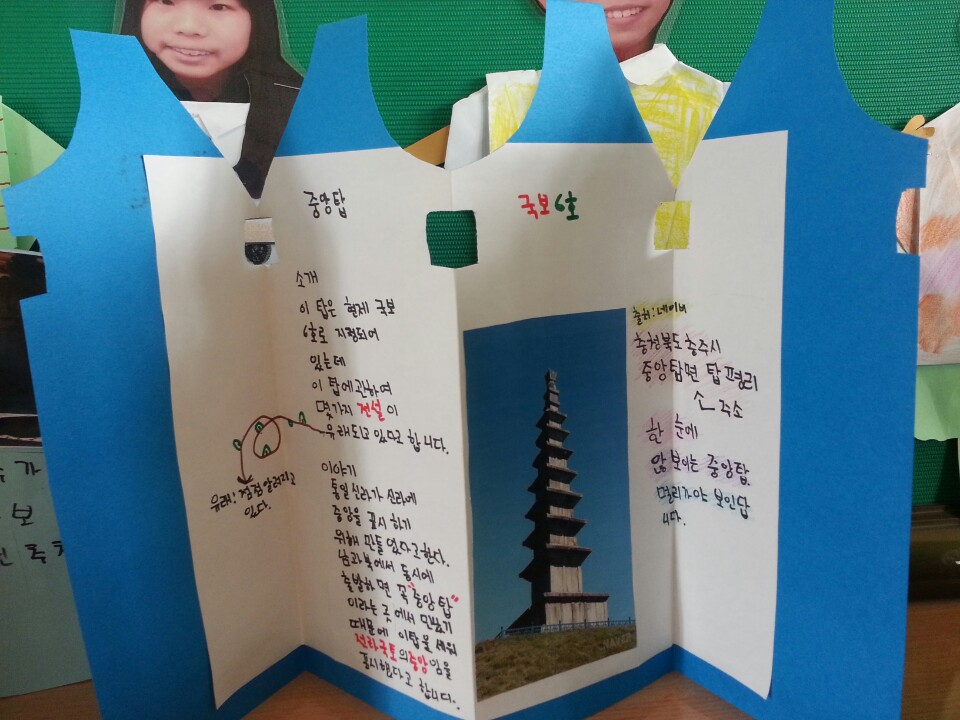 중앙탑
소개
이 탑은 현제 국보
6호로 지정되어
있는데
이 탑에 관하여
몇가지 전설이
유래되고 있다고 합니다.
유래: 점점 알려지고
있다.
이야기
통일신라가 신라에
중앙을 표시 하기
위해 만들었다고한다.
남과북에서 동시에
출발하면 꼭 "중앙탑"
이라는 곳에서 만났기
때문에 이탑을 세워
신라국토의중앙임을
표시했다고 합니다.
국보6호
출처:네이버
충청북도충주시
중앙탑면 탑평리
주소
한 눈에
않보이는 중앙탑
멀리가야 보인답
니다.